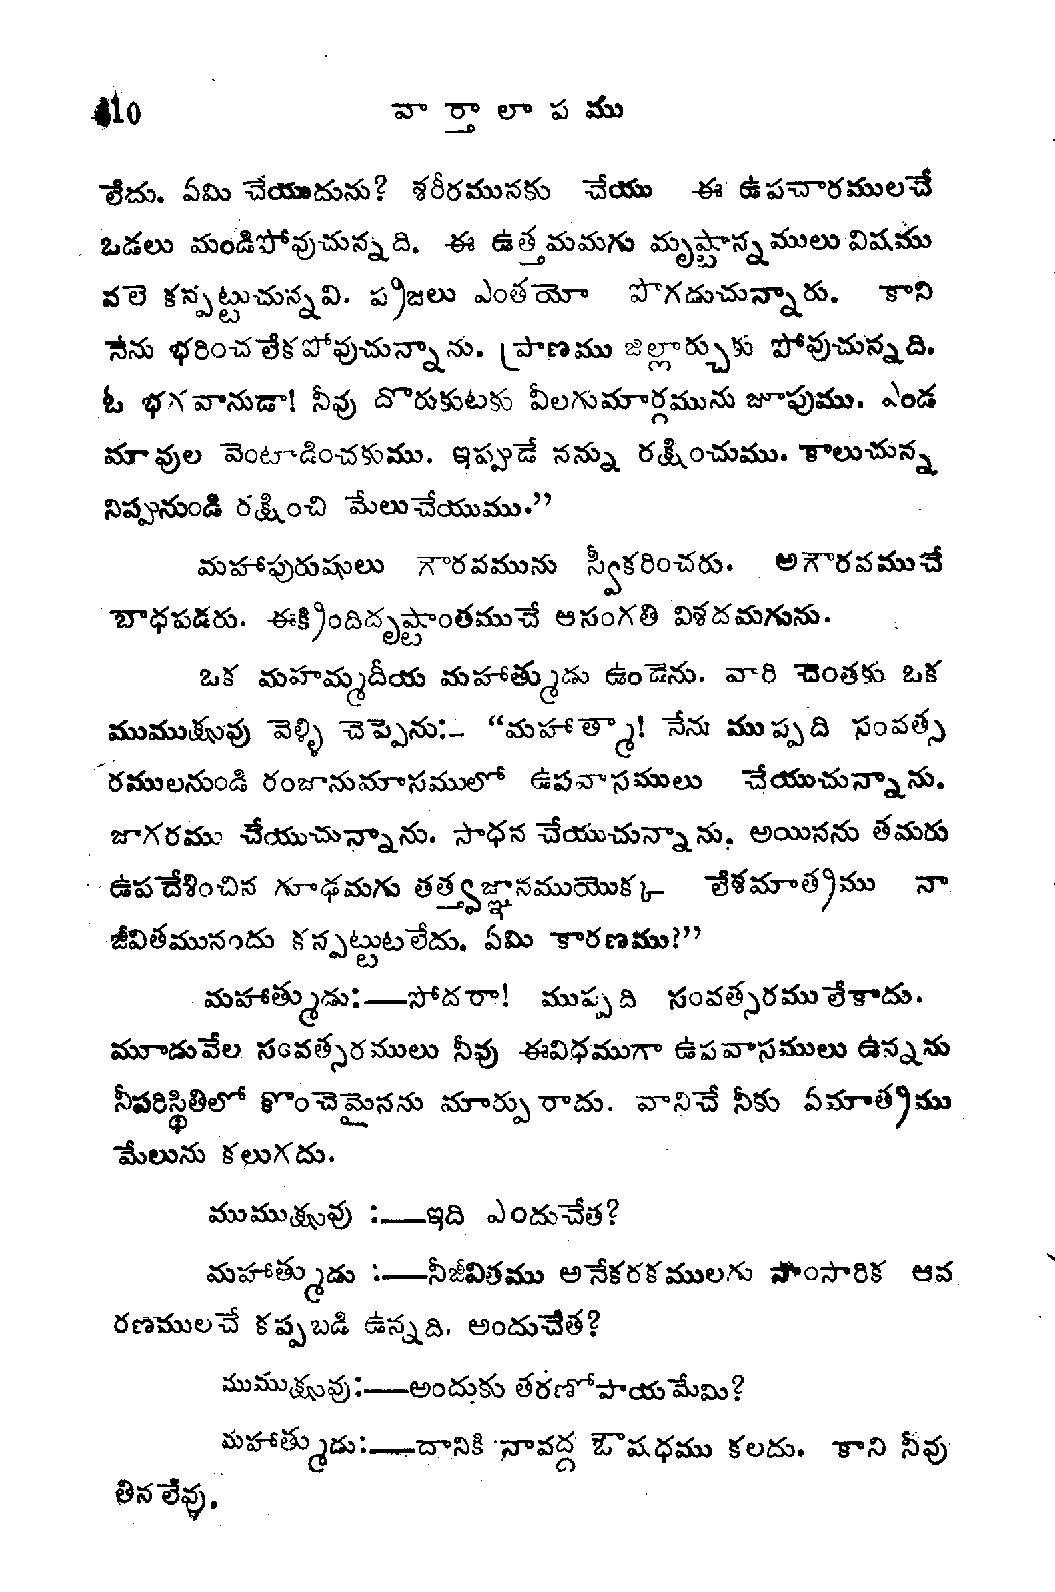 410 వార్తాలాపము
లేదు. ఏమి చేయుదును? శరీరమునకు చేయు ఈ ఉపచారములచే
ఒడలు మండిపోవుచున్నది. ఈ ఉత్తమమగు మృష్టాన్నములు విషము
వలె కన్పట్టుచున్నవి. ప్రజలు ఎంతయో పొగడుచున్నారు. కాని
నేను భరించలేకపోవుచున్నాను. ప్రాణము జిల్లార్చుకు పోవుచున్నది.
ఓ భగవానుడా! నీవు దొరుకుటకు వీలగుమార్గమును జూపుము. ఎండ
మావుల వెంటాడించకుము. ఇప్పుడే నన్ను రక్షించుము. కాలుచున్న
నిప్పునుండి రక్షించి మేలుచేయుము.”
మహాపురుషులు గౌరవమును స్వీకరించరు. అగౌరవముచే
బాధపడరు. ఈక్రిందిదృష్టాంతముచే ఆసంగతి విశదమగును.
ఒక మహమ్మదీయ మహాత్ముడు ఉండెను. వారి చెంతకు ఒక
ముముక్షువు వెళ్ళి చెప్పెను:– “మహాత్మా! నేను ముప్పది సంవత్స
రములనుండి రంజానుమాసములో ఉపవాసములు చేయుచున్నాను.
జాగరము చేయుచున్నాను. సాధన చేయుచున్నాను. అయినను తమరు
ఉపదేశించిన గూఢమగు తత్త్వజ్ఞానముయొక్క లేశమాత్రము నా
జీవితమునందు కన్పట్టుటలేదు. ఏమి కారణము?”
మహాత్ముడు:—సోదరా! ముప్పది సంవత్సరములేకాదు.
మూడువేల సంవత్సరములు నీవు ఈవిధముగా ఉపవాసములు ఉన్నను
నీపరిస్థితిలో కొంచెమైనను మార్పు రాదు. వానిచే నీకు ఏమాత్రము
మేలును కలుగదు.
ముముక్షువు :—ఇది ఎందుచేత?
మహాత్ముడు :—నీజీవితము అనేకరకములగు సాంసారిక ఆవ
రణములచే కప్పబడి ఉన్నది. అందుచేత?
ముముక్షువు:—అందుకు తరణోపాయమేమి?
మహాత్ముడు:—దానికి నావద్ద ఔషధము కలదు. కాని నీవు
తినలేవు.